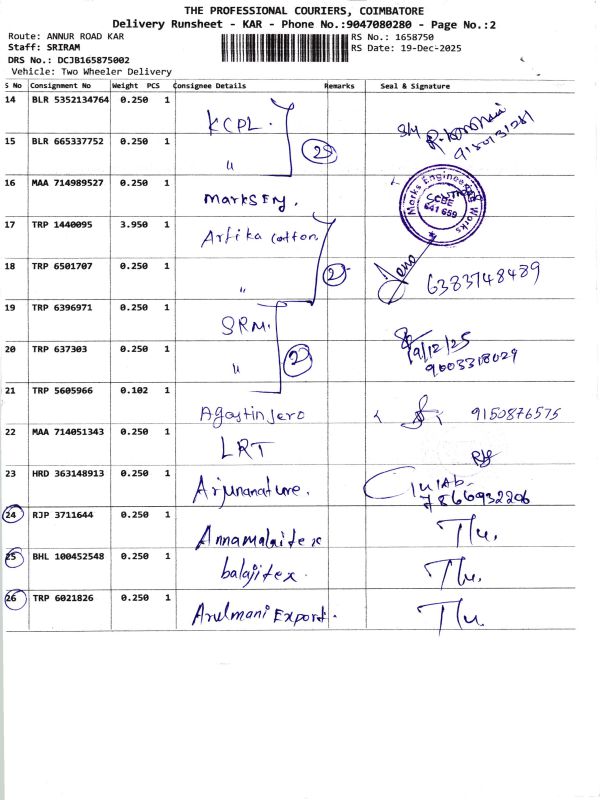 THE PROFESSIONAL COURIERS, COIMBATORE
Delivery Runsheet - KAR - Phone No.:9047080280 - Page No.:2
Route: ANNUR ROAD KAR RS No.: 1658750
Staff: SRIRAM RS Date: 19-Dec-2025
DRS No.: DCJB165875002
Vehicle: Two Wheeler Delivery
S No Consignment No Weight PCS Consignee Details Remarks Seal & Signature
14 BLR 5352134764 0.250 1 KCPL.
15 BLR 665337752 0.250 1 "
16 MAA 714989527 0.250 1 Marks Eng. Marks Engineering Works 641 659
17 TRP 1440095 3.950 1 Artika cotton.
18 TRP 6501707 0.250 1 " 2 6383748489
19 TRP 6396971 0.250 1 SRM. 19/12/25
20 TRP 637303 0.250 1 " 2 9003318029
21 TRP 5605966 0.102 1 Agastin jero 9150876575
22 MAA 714051343 0.250 1 LRT
23 HRD 363148913 0.250 1 Arjunanature. 7866932206
24 RJP 3711644 0.250 1 Annamalaitex
25 BHL 100452548 0.250 1 balajitex.
26 TRP 6021826 0.250 1 Arulmani Export.